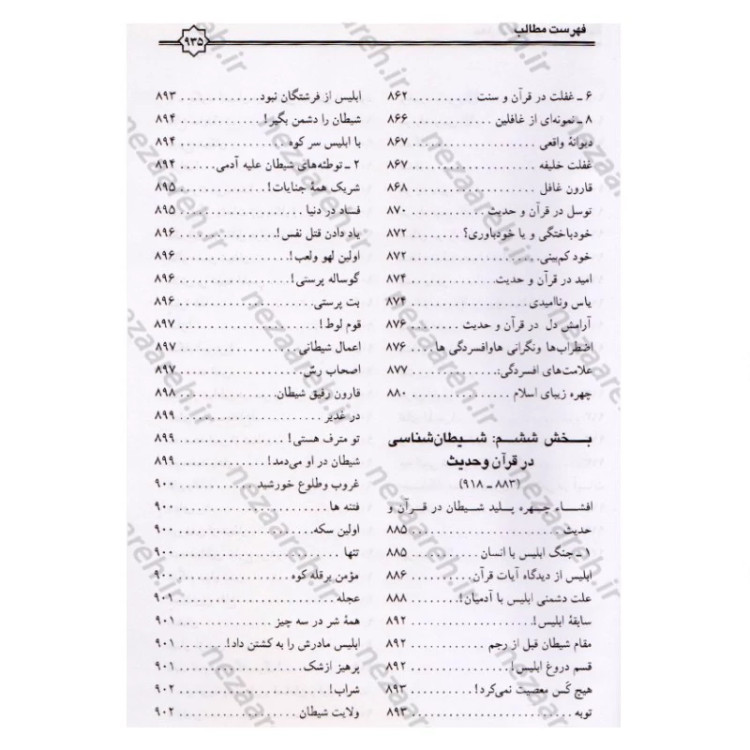 فهرست مطالب
۹۳۵
۶ ـ غفلت در قرآن و سنت .......... ۸۶۲
۸ ـ نمونه‌ای از غافلین .......... ۸۶۶
دیوانهٔ واقعی .......... ۸۶۷
غفلت خلیفه .......... ۸۶۷
قارون غافل .......... ۸۶۸
توسل در قرآن و حدیث .......... ۸۷۰
خودباختگی و یا خودباوری؟ .......... ۸۷۲
خود کم‌بینی .......... ۸۷۲
امید در قرآن و حدیث .......... ۸۷۴
یاس وناامیدی .......... ۸۷۴
آرامش دل در قرآن و حدیث .......... ۸۷۶
اضطراب‌ها ونگرانی هاوافسردگی ها .......... ۸۷۶
علامت‌های افسردگی: .......... ۸۷۷
چهره زیبای اسلام .......... ۸۸۰
بخش ششم: شیطان‌شناسی
در قرآن وحدیث
(۸۸۳ ـ ۹۱۸)
افشاء چهره پلید شیطان در قرآن و
حدیث .......... ۸۸۵
۱ ـ جنگ ابلیس با انسان .......... ۸۸۵
ابلیس از دیدگاه آیات قرآن .......... ۸۸۶
علت دشمنی ابلیس با آدمیان! .......... ۸۸۸
سابقهٔ ابلیس! .......... ۸۹۲
مقام شیطان قبل از رجم .......... ۸۹۲
قسم دروغ ابلیس! .......... ۸۹۲
هیچ کَس معصیت نمی‌کرد! .......... ۸۹۳
توبه .......... ۸۹۳
ابلیس از فرشتگان نبود .......... ۸۹۳
شیطان را دشمن بگیر! .......... ۸۹۴
با ابلیس سر کوه .......... ۸۹۴
۲ ـ توطئه‌های شیطان علیه آدمی .......... ۸۹۴
شریک همهٔ جنایات! .......... ۸۹۵
فساد در دنیا .......... ۸۹۵
یاد دادن قتل نفس! .......... ۸۹۶
اولین لهو ولعب! .......... ۸۹۶
گوساله پرستی! .......... ۸۹۶
بت پرستی .......... ۸۹۶
قوم لوط! .......... ۸۹۷
اعمال شیطانی .......... ۸۹۷
اصحاب رش .......... ۸۹۷
قارون رفیق شیطان .......... ۸۹۸
در غدیر .......... ۸۹۹
تو مترف هستی! .......... ۸۹۹
شیطان در او می‌دمد! .......... ۸۹۹
غروب وطلوع خورشید .......... ۹۰۰
فتنه ها .......... ۹۰۰
اولین سکه .......... ۹۰۰
تتها .......... ۹۰۰
مؤمن برقله کوه .......... ۹۰۰
عجله .......... ۹۰۱
همهٔ شر در سه چیز .......... ۹۰۱
ابلیس مادرش را به کشتن داد! .......... ۹۰۱
پرهیز ازشک .......... ۹۰۱
شراب! .......... ۹۰۲
ولایت شیطان .......... ۹۰۲
nezaareh.ir